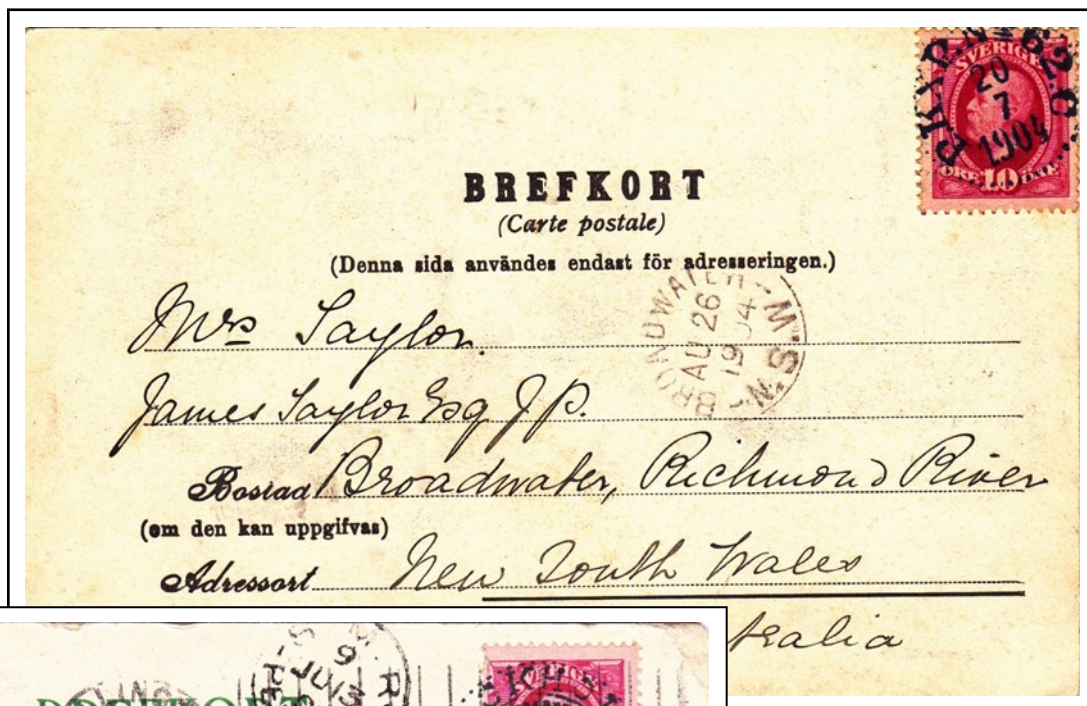 PKXP. Nr 62. C
SVERIGE
20
7
1904
ÖRE 10 ÖRE
BREFKORT
(Carte postale)
(Denna sida användes endast för adresseringen.)
BROADWATER
AU 26
1904
N.S.W
Mrs Saylor.
James Saylor Esq J.P.
Bostad Broadwater, Richmond River
(om den kan uppgifvas)
Adressort New South Wales
tralia
BREFKORT
JU 13